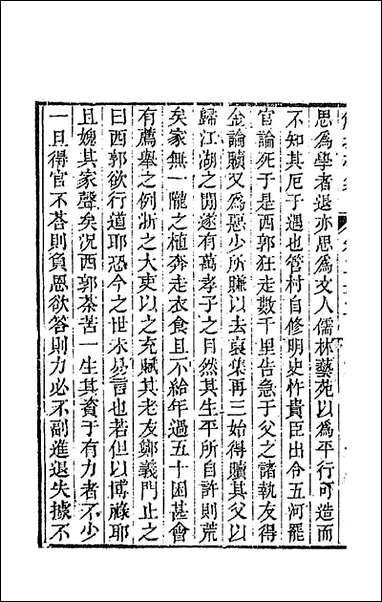 思為學者退亦思為文人儒林藝苑以為平行可造而
不知其厄于遇也管村自修明史忤貴臣出令五河罷
官論死于是西郭狂走數千里告急于父之諸執友得
金論贖又為惡少所賺以去裒集再三始得贖其父以
歸江湖之閒遂有萬孝子之目然其生平所自許則荒
矣家無一隴之植奔走衣食且不給年過五十困甚會
有薦舉之例浙之大吏以之充賦其老友鄭義門止之
曰西郭欲行道耶恐今之世未易言也若但以博祿耶
且媿其家聲矣況西郭茶苦一生其資于有力者不少
一旦得官不荅則負恩欲答則力必不副進退失據不